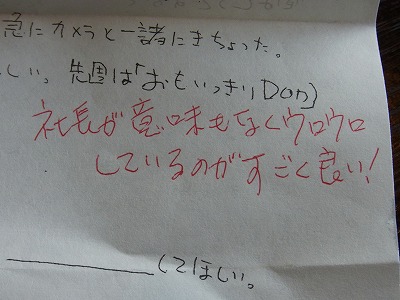 急にカメラと一諸にきちょった。
しい。先週は「おもいっきりDon」
社長が意味もなくウロウロ
しているのがすごく良い!
してほしい。